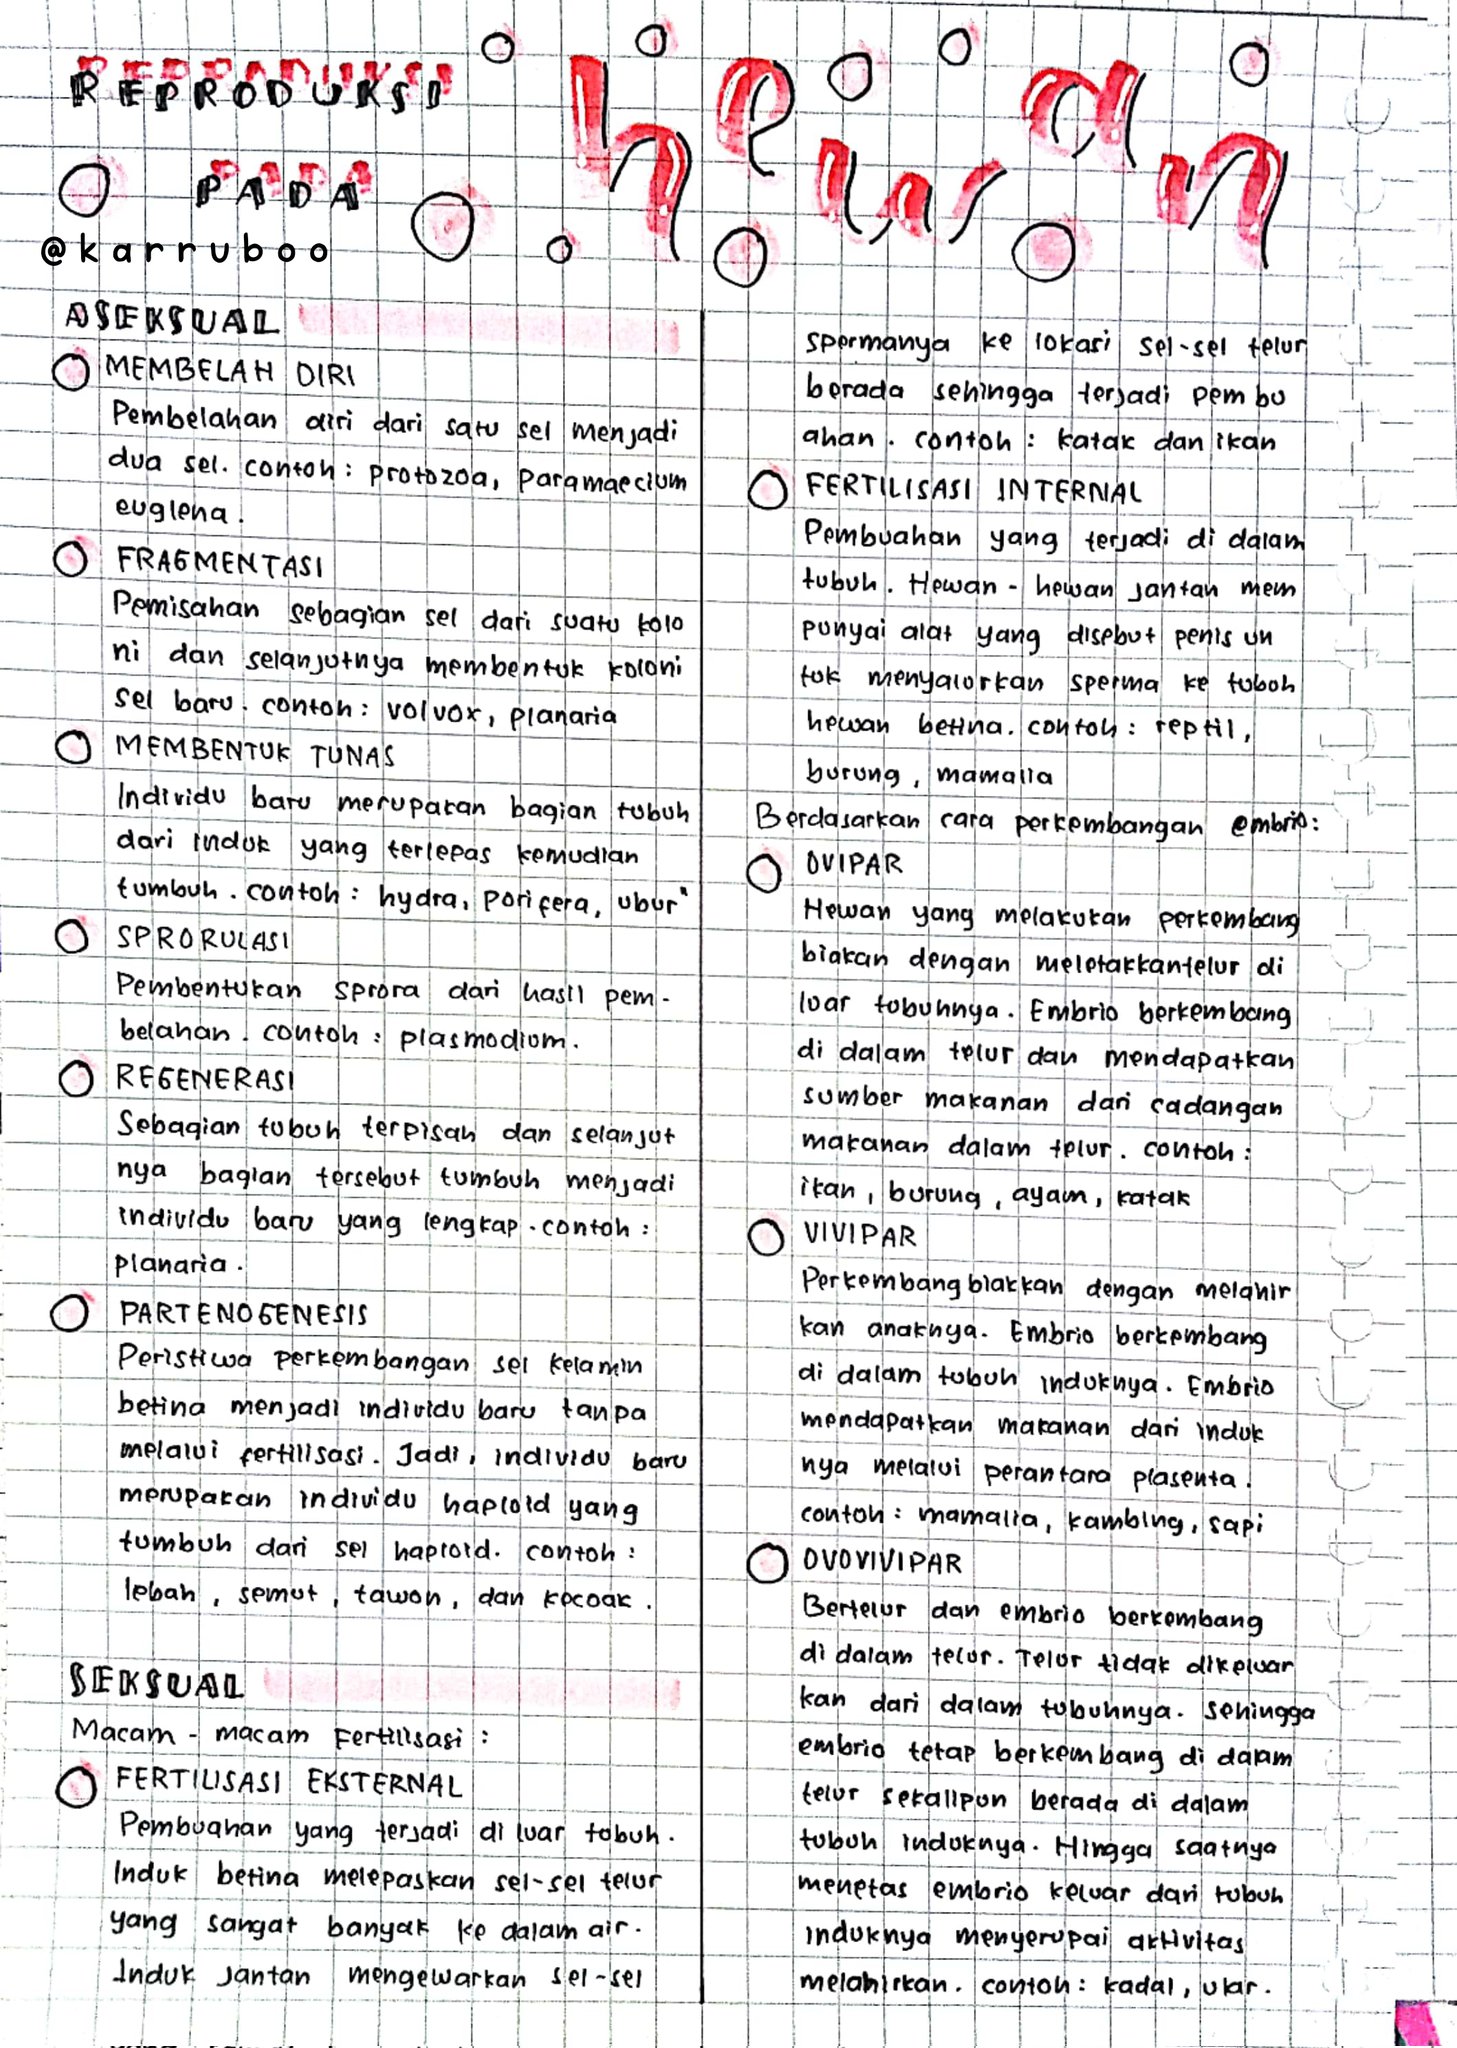 REPRODUKSI
PADA
hewan
@karruboo
ASEKSUAL
MEMBELAH DIRI
Pembelahan diri dari satu sel menjadi
dua sel. contoh: protozoa, paramaecium
euglena.
FRAGMENTASI
Pemisahan sebagian sel dari suatu kolo
ni dan selanjutnya membentuk koloni
sel baru. contoh: volvox, planaria
MEMBENTUK TUNAS
Individu baru merupakan bagian tubuh
dari induk yang terlepas kemudian
tumbuh. contoh: hydra, porifera, ubur"
SPRORULASI
Pembentukan sprora dari hasil pem-
belahan. contoh: plasmodium.
REGENERASI
Sebagian tubuh terpisah dan selanjut
nya bagian tersebut tumbuh menjadi
individu baru yang lengkap. contoh:
planaria.
PARTENOGENESIS
Peristiwa perkembangan sel kelamin
betina menjadi individu baru tanpa
melalui fertilisasi. Jadi, individu baru
merupakan individu haploid yang
tumbuh dari sel haploid. contoh:
lebah, semut, tawon, dan kecoak.
SEKSUAL
Macam-macam Fertilisasi:
FERTILISASI EKSTERNAL
Pembuahan yang terjadi di luar tubuh.
Induk betina melepaskan sel-sel telur
yang sangat banyak ke dalam air.
Induk jantan mengewarkan sel-sel
spermanya ke lokasi sel-sel telur
berada sehingga terjadi pembu
ahan. contoh: katak dan ikan
FERTILISASI INTERNAL
Pembuahan yang terjadi di dalam
tubuh. Hewan-hewan jantan mem
punyai alat yang disebut penis un
tuk menyalurkan sperma ke tubuh
hewan betina. contoh: reptil,
burung, mamalia
Berdasarkan cara perkembangan embrio:
OVIPAR
Hewan yang melakukan perkembang
biakan dengan meletakkantelur di
luar tubuhnya. Embrio berkembang
di dalam telur dan mendapatkan
sumber makanan dari cadangan
makanan dalam telur. contoh:
ikan, burung, ayam, katak
VIVIPAR
Perkembangbiakkan dengan melahir
kan anaknya. Embrio berkembang
di dalam tubuh induknya. Embrio
mendapatkan makanan dari induk
nya melalui perantara plasenta.
contoh: mamalia, kambing, sapi
OVOVIVIPAR
Bertelur dan embrio berkembang
di dalam telur. Telur tidak dikeluar
kan dari dalam tubuhnya. Sehingga
embrio tetap berkembang di dalam
telur sekalipun berada di dalam
tubuh induknya. Hingga saatnya
menetas embrio keluar dari tubuh
induknya menyerupai aktivitas
melahirkan. contoh: kadal, ular.